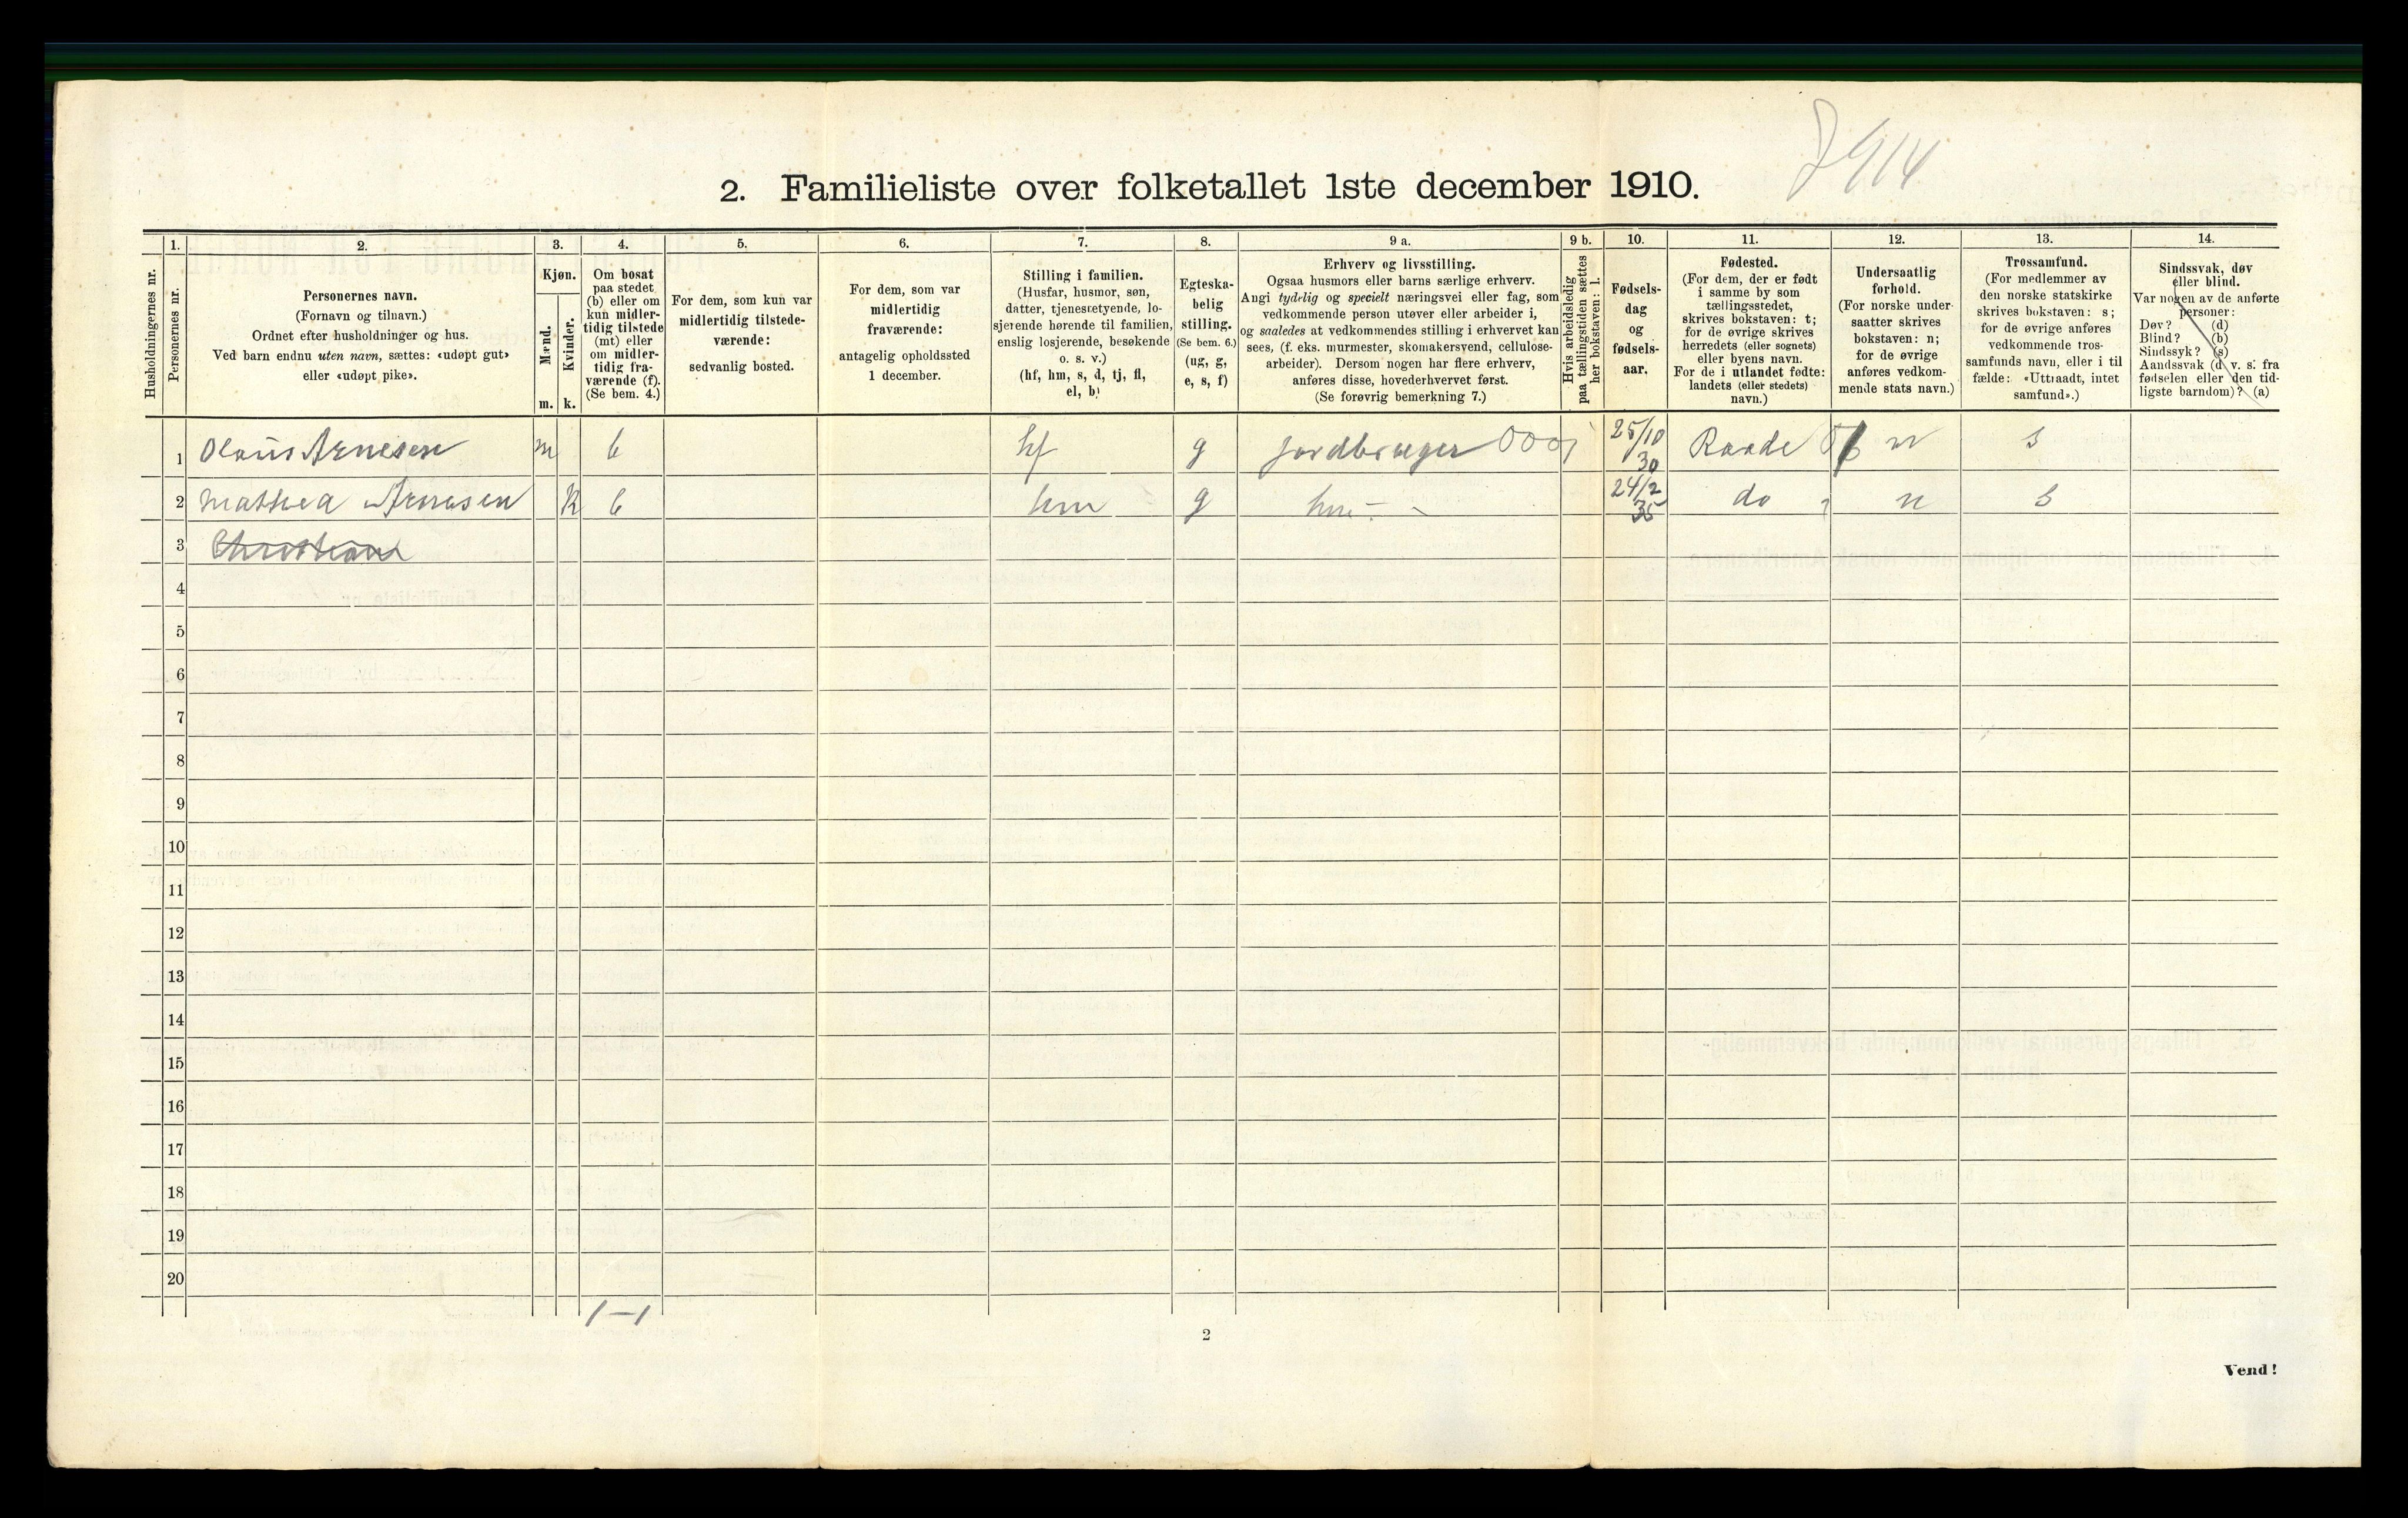 7914
2. Familieliste over folketallet 1ste december 1910.
Husholdningernes nr.
1.
Personernes nr.
2.
Personernes navn.
(Fornavn og tilnavn.)
Ordnet efter husholdninger og hus.
Ved barn endnu uten navn, sættes: «udøpt gut»
eller «udøpt pike».
3.
Kjøn.
Mænd.
Kvinder.
m. k.
4.
Om bosat
paa stedet
(b) eller om
kun midler-
tidig tilstede
(mt) eller
om midler-
tidig fra-
værende (f).
(Se bem. 4.)
5.
For dem, som kun var
midlertidig tilstede-
værende:
sedvanlig bosted.
6.
For dem, som var
midlertidig
fraværende:
antagelig opholdssted
1 december.
7.
Stilling i familien.
(Husfar, husmor, søn,
datter, tjenestetyende, lo-
sjerende hørende til familien,
enslig losjerende, besøkende
o. s. v.)
(hf, hm, s, d, tj, fl,
el, b)
8.
Egteska-
belig
stilling.
(Se bem. 6.)
(ug, g,
e, s, f)
9 a.
Erhverv og livsstilling.
Ogsaa husmors eller barns særlige erhverv.
Angi tydelig og specielt næringsvei eller fag, som
vedkommende person utøver eller arbeider i,
og saaledes at vedkommendes stilling i erhvervet kan
sees, (f. eks. murmester, skomakersvend, cellulose-
arbeider). Dersom nogen har flere erhverv,
anføres disse, hovederhvervet først.
(Se forøvrig bemerkning 7.)
9 b.
Hvis arbeidsledig
paa tællingstiden sættes
her bokstaven: l.
10.
Fødsels-
dag
og
fødsels-
aar.
11.
Fødested.
(For dem, der er født
i samme by som
tællingsstedet,
skrives bokstaven: t;
for de øvrige skrives
herredets (eller sognets)
eller byens navn.
For de i utlandet fødte:
landets (eller stedets)
navn.)
12.
Undersaatlig
forhold.
(For norske under-
saatter skrives
bokstaven: n;
for de øvrige
anføres vedkom-
mende stats navn.)
13.
Trossamfund.
(For medlemmer av
den norske statskirke
skrives bokstaven: s;
for de øvrige anføres
vedkommende tros-
samfunds navn, eller i til
fælde: «Uttraadt, intet
samfund».)
14.
Sindssvak, døv
eller blind.
Var nogen av de anførte
personer:
Døv? (d)
Blind? (b)
Sindssyk? (s)
Aandssvak (d. v. s. fra
fødselen eller den tid-
ligste barndom)? (a)
1 Olaus Arnesen m b hf g jordbruger 25/10 30 Raade n s
2 Mathea Arnesen k b hm g hm 24/2 35 do n s
3 Christiane
4
5
6
7
8
9
10
11
12
13
14
15
16
17
18
19
20
1-1
2
Vend!